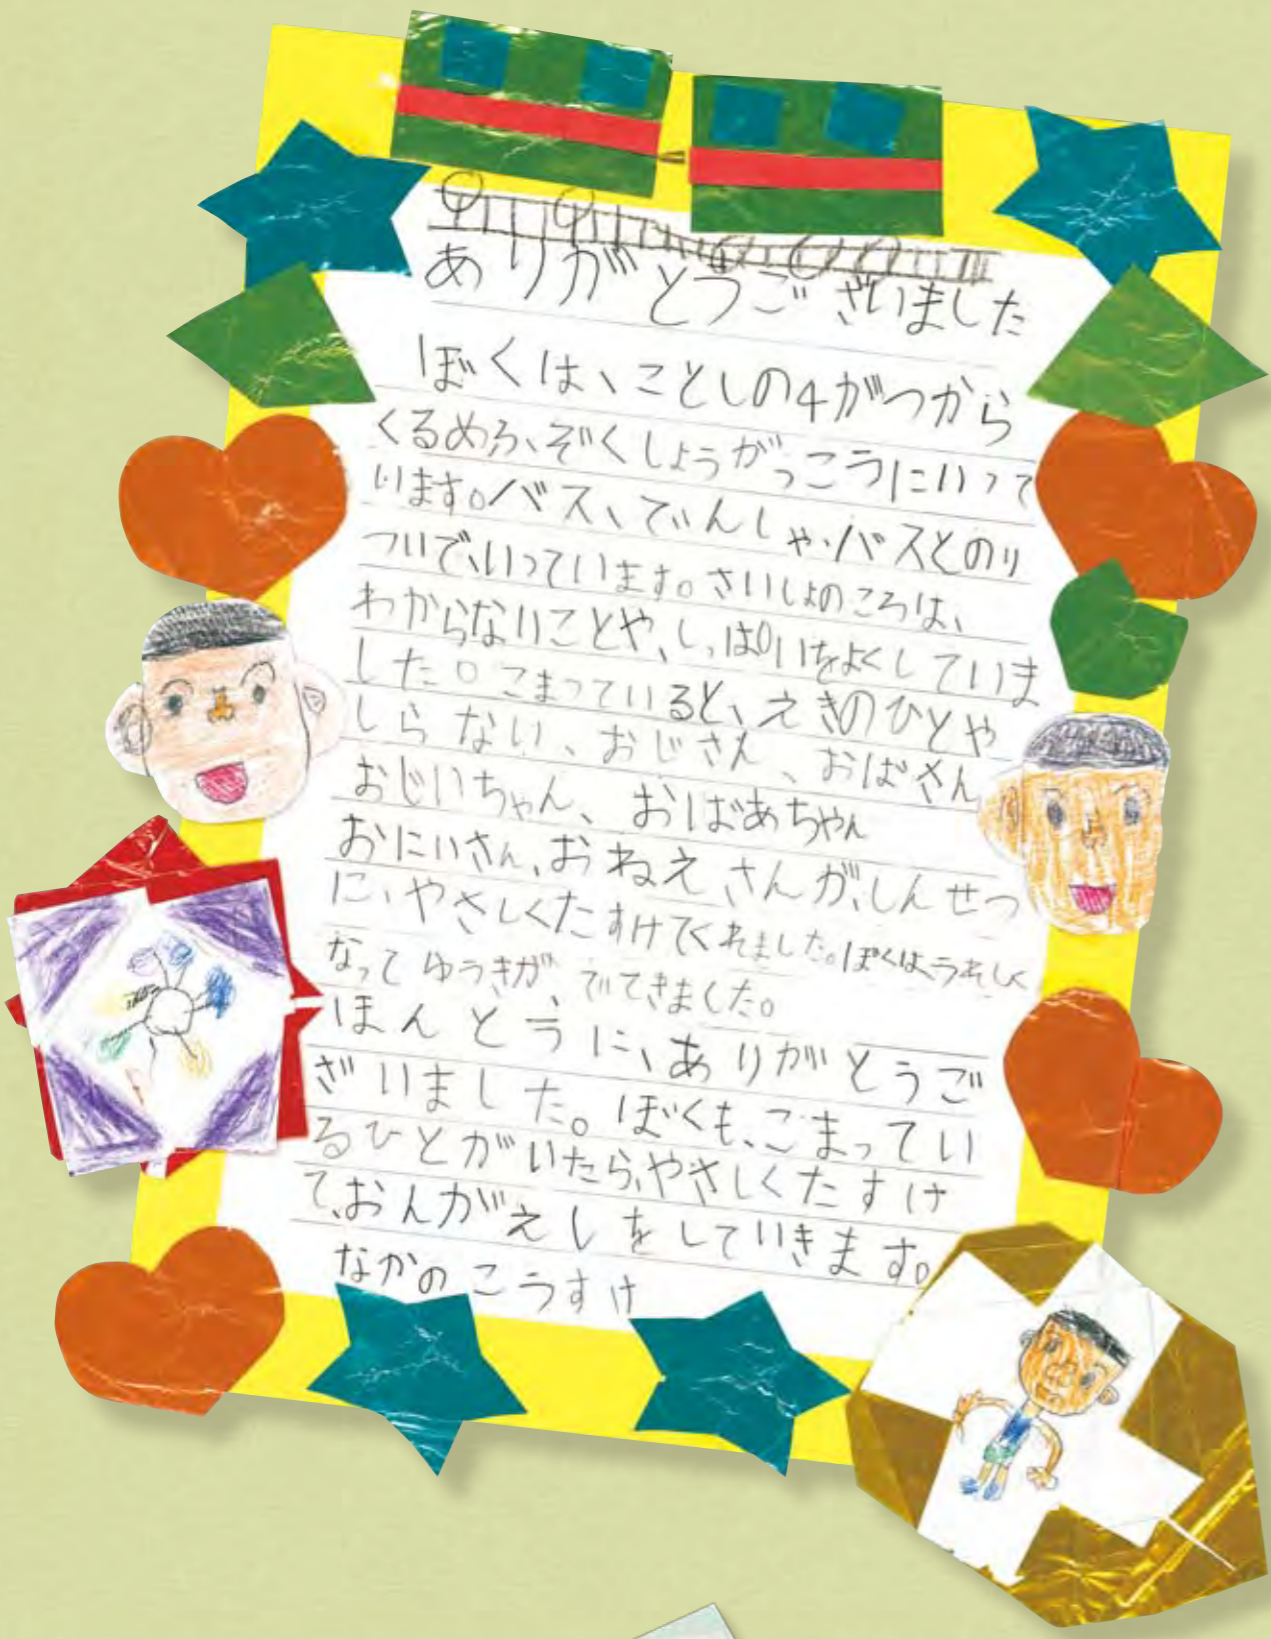 ありがとうございました
ぼくは、ことしの4がつから
くるめろ、ぞくしょうがっこうにいって
います。バス、でんしゃ、バスとのり
ついで、いっています。さいしょのころは、
わからないことや、しっぱいをよくしていま
した。こまっていると、えきのひとや
しらない、おじさん、おばさん、
おじいちゃん、おばあちゃん
おにいさん、おねえさんが、しんせつ
に、やさしくたすけてくれました。ぼくは、うれしく
なってゆうきが、でてきました。
ほんとうに、ありがとうご
ざいました。ぼくも、こまってい
るひとがいたら、やさしくたすけ
て、おんがえしをしていきます。
なかのこうすけ